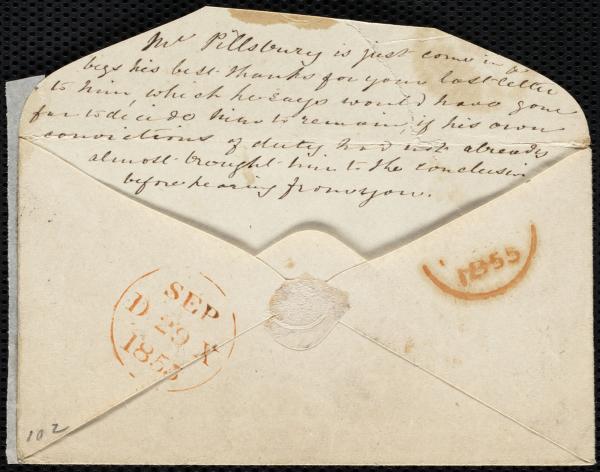 Mr Pillsbury is just come in &
begs his best thanks for your last letter
to him, which he says would have gone
far to decide him to remain, if his own
convictions of duty had not already
almost brought him to the conclusion
before hearing from you.
1855
SEP
D 29 X
1855
102